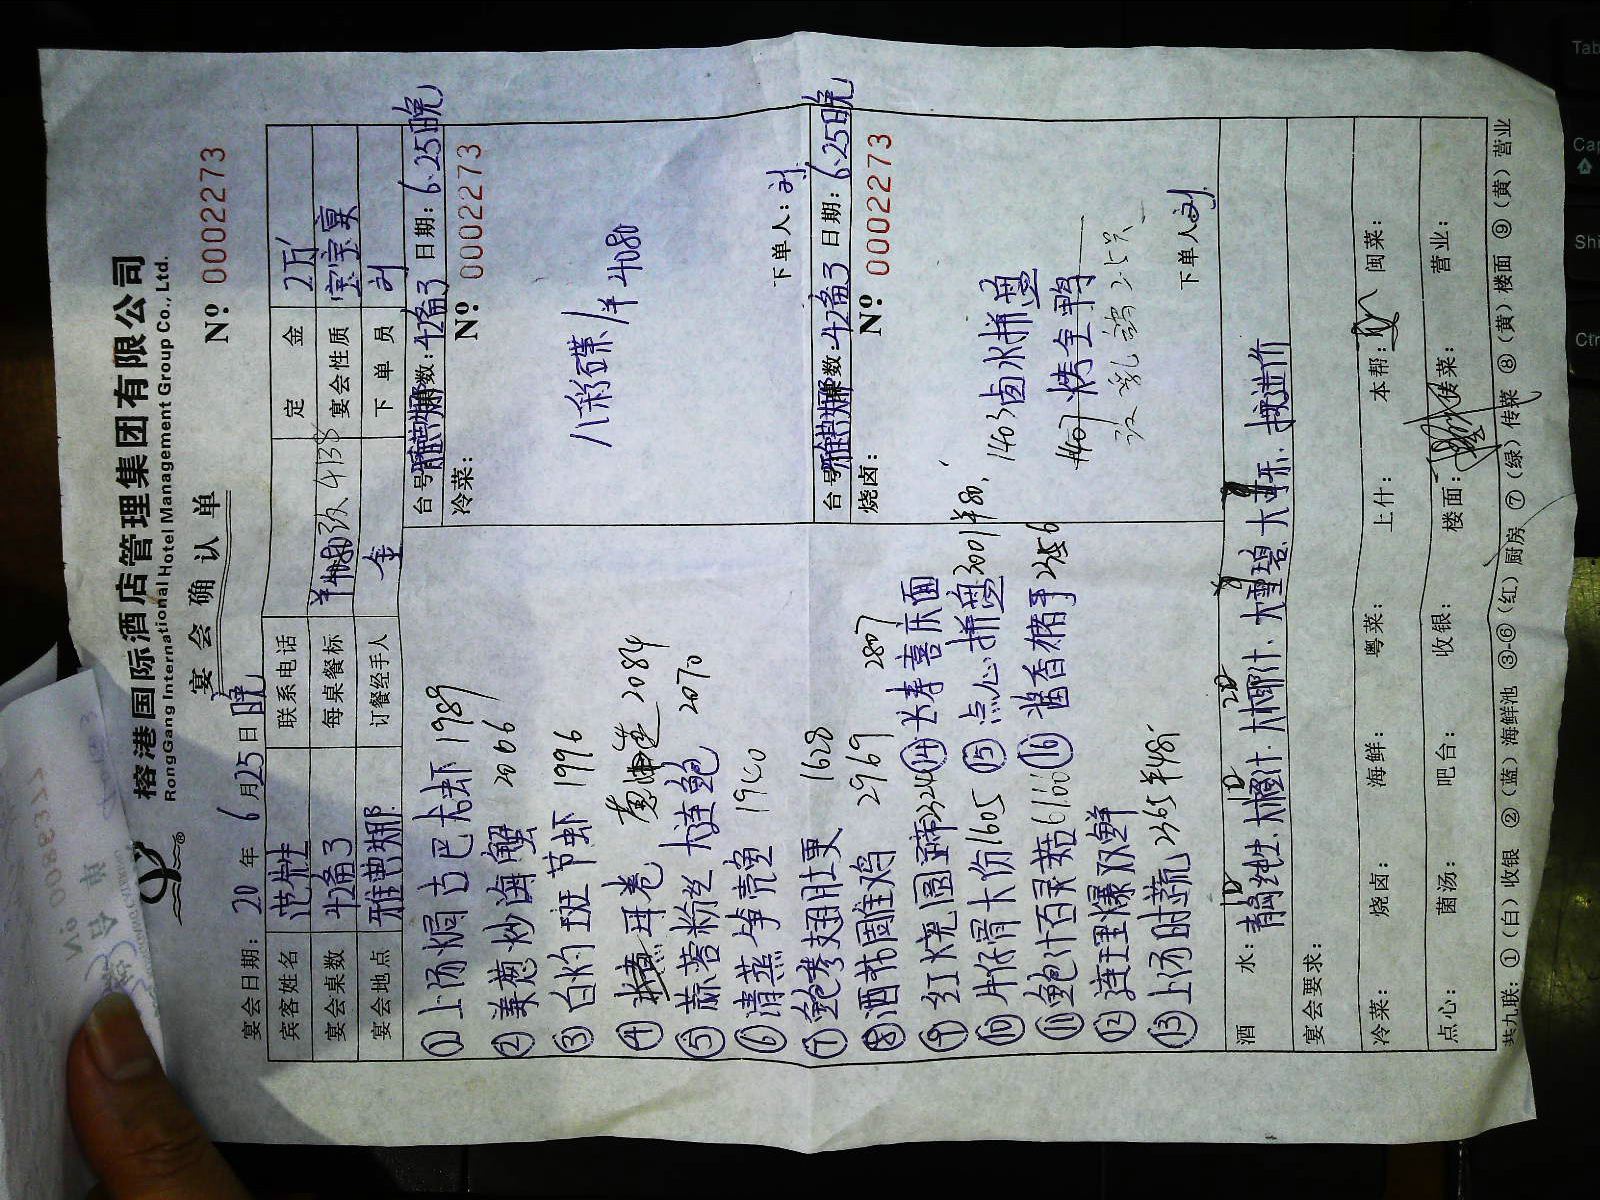 榕港国际酒店管理集团有限公司
RongGang International Hotel Management Group Co., Ltd.
宴会确认单
宴会日期: 20 年 6 月 25 日 晚
Nº 0002273
宾客姓名 范先生 联系电话 定金 2万
宴会桌数 42备3 每桌餐标 改4138 宴会性质 宝宝宴
宴会地点 雅典娜 订餐经手人 金 下单员 刘
① 上汤焗古巴大虾 1989
② 姜葱炒海蟹 2066
③ 白灼斑节虾 1996
④ 2084
⑤ 蒜蓉粉丝大连鲍 2070
⑥ 清蒸
⑦ 鲍参翅肚羹 1628
⑧ 酒香雕鸡 2969 2807
⑨ 红烧圆蹄 324 ⑭ 长寿喜庆面
⑩ 牛仔骨大份 1605 ⑮ 点心拼盘 3001 半80
⑪ 鲍汁百灵菇 6166 ⑯ 酱香猪手
⑫ 连理爆双鲜
⑬ 上汤时蔬 2365 半48
台号: 雅典娜 桌数: 42备3 日期: 6.25晚
冷菜: Nº: 0002273
八彩碟/半 4080
下单人: 刘
台号: 雅典娜 桌数: 42备3 日期: 6.25晚
烧卤: Nº: 0002273
1403 卤水拼盘
烤全鸭
改乳鸽2.5只
下单人: 刘
酒水: 青岛纯生. 大橙汁. 大椰汁. 大雪碧. 大可乐.
宴会要求:
冷菜: 烧卤: 海鲜: 粤菜: 上什: 本帮: 闽菜:
点心: 菌汤: 吧台: 收银: 楼面: 传菜: 营业:
共九联: ①(白)收银 ②(蓝)海鲜池 ③-⑥(红)厨房 ⑦(绿)传菜 ⑧(黄)楼面 ⑨(黄)营业
Tab
Ctr